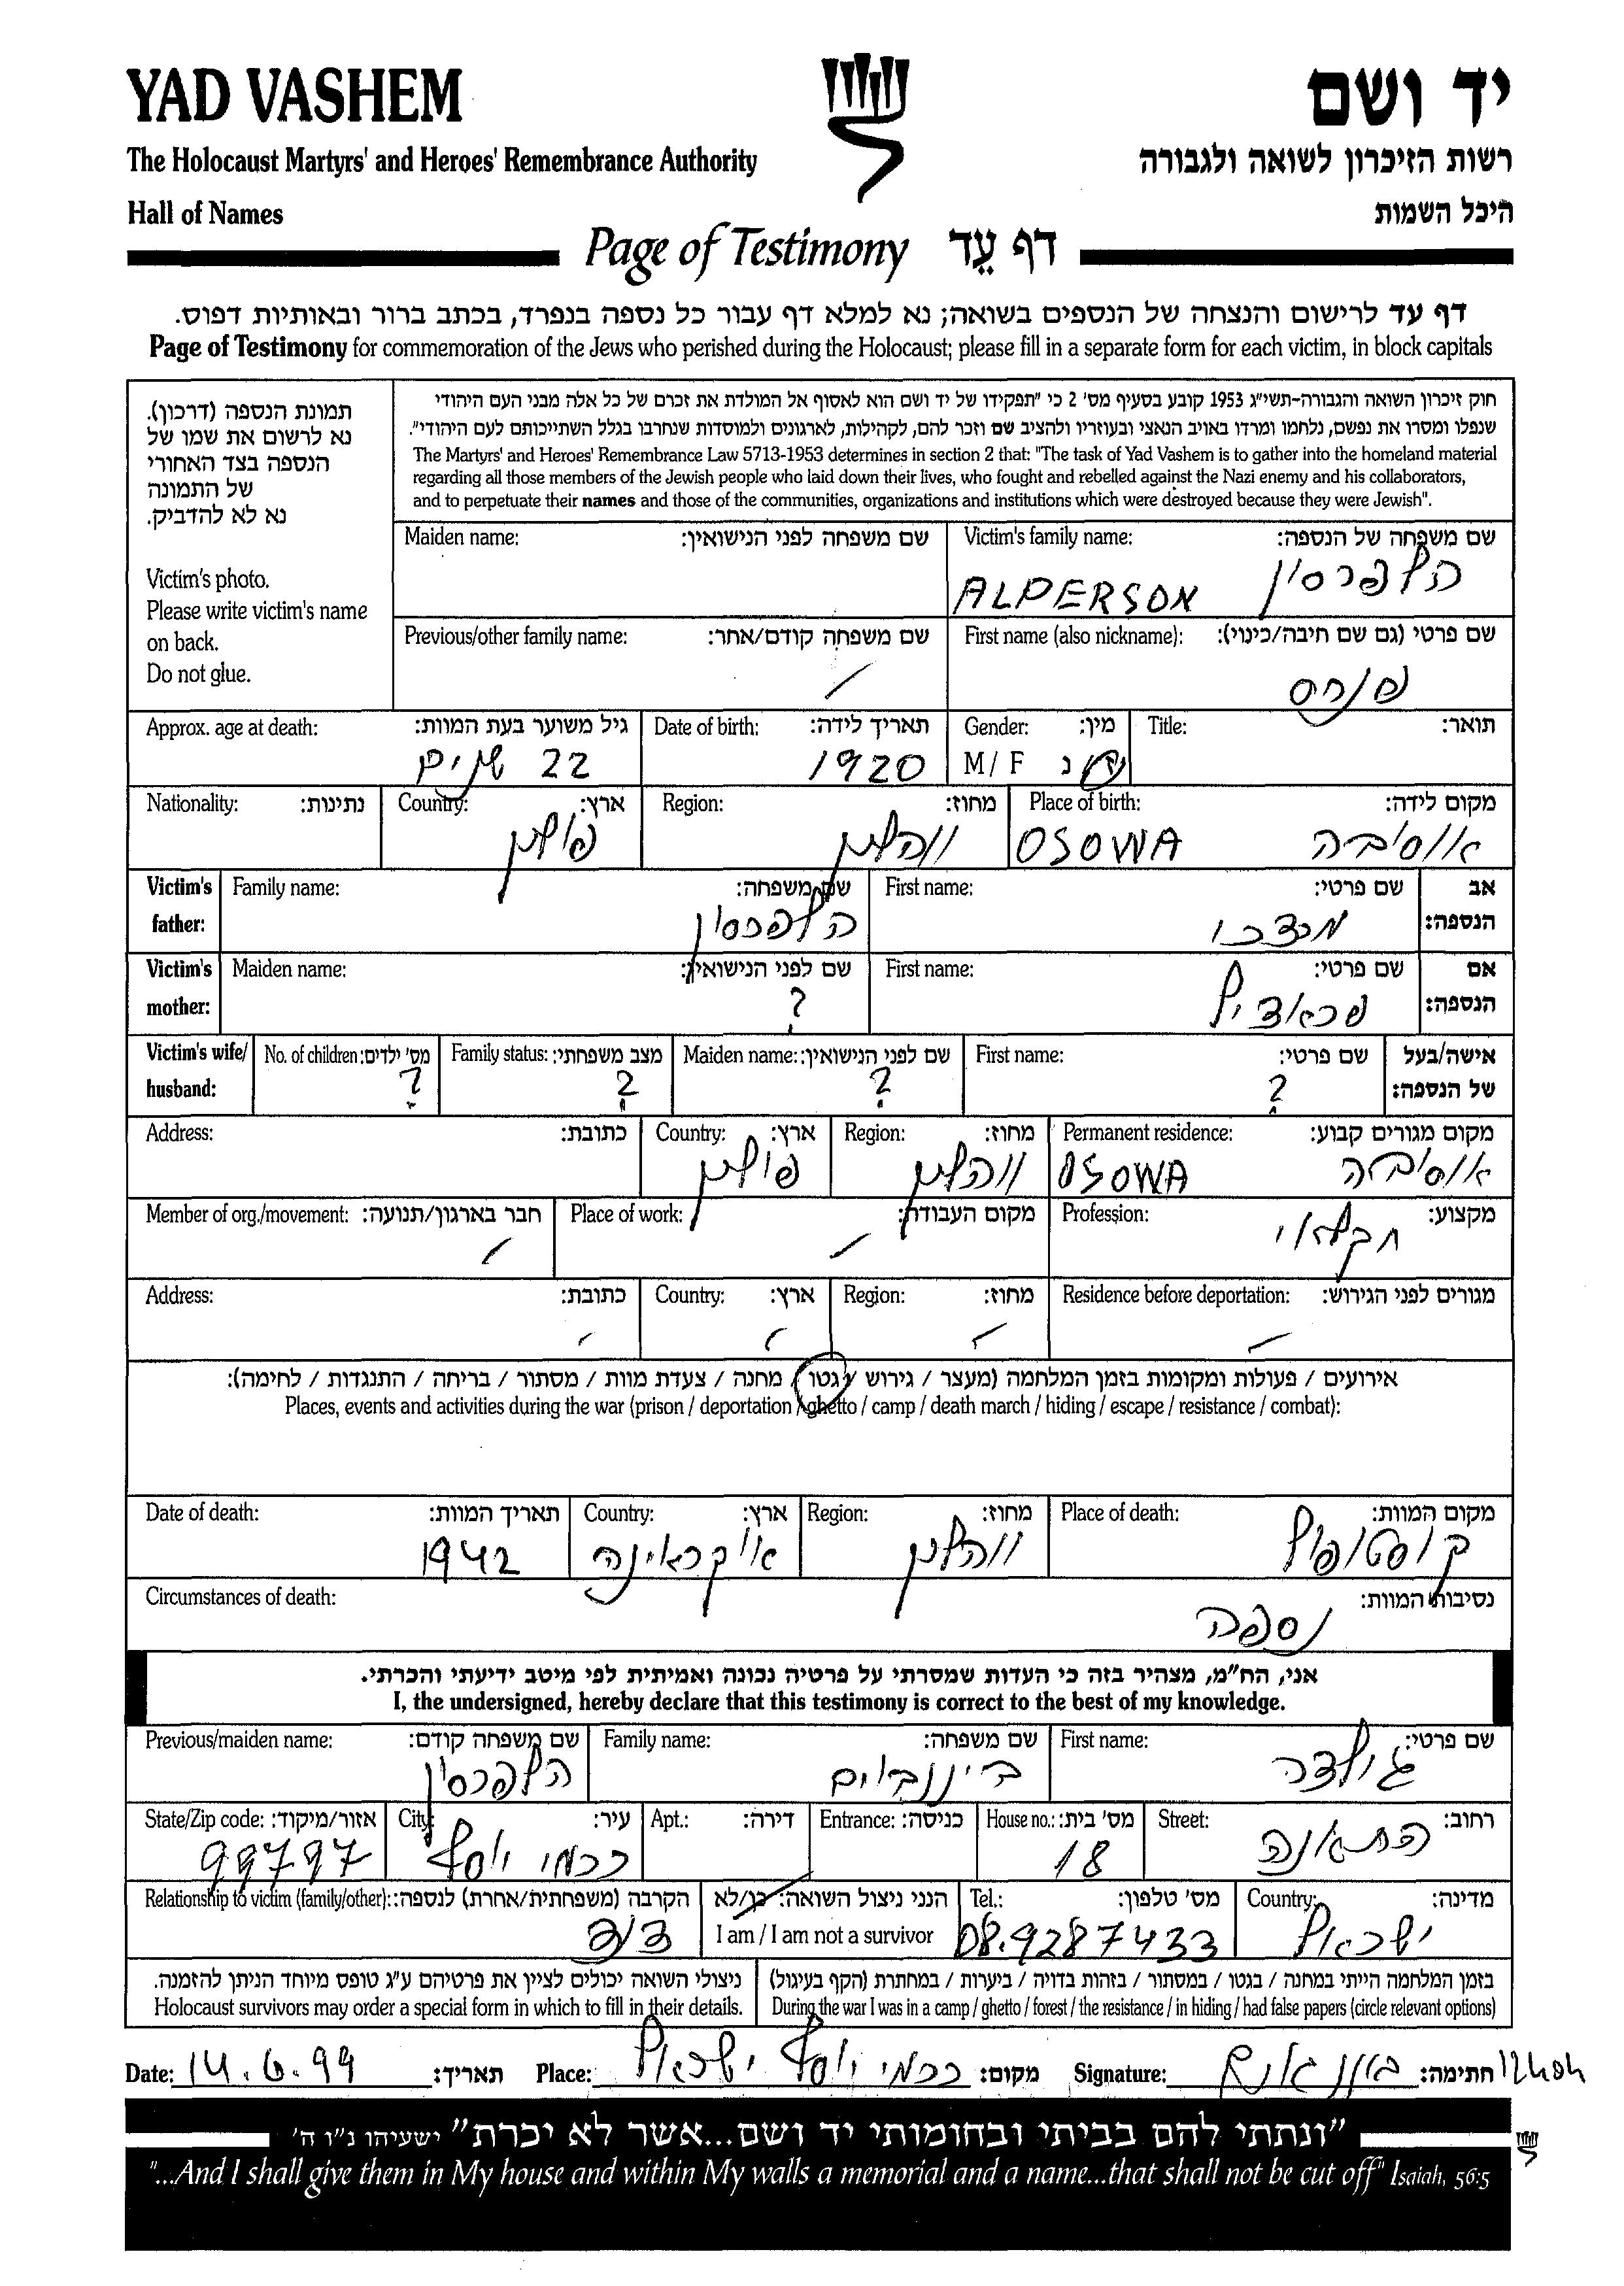 YAD VASHEM
יד ושם
The Holocaust Martyrs' and Heroes' Remembrance Authority
רשות הזיכרון לשואה ולגבורה
Hall of Names
היכל השמות
Page of Testimony דף עֵד
דף עד לרישום והנצחה של הנספים בשואה; נא למלא דף עבור כל נספה בנפרד, בכתב ברור ובאותיות דפוס.
Page of Testimony for commemoration of the Jews who perished during the Holocaust; please fill in a separate form for each victim, in block capitals
תמונת הנספה (דרכון).
נא לרשום את שמו של
הנספה בצד האחורי
של התמונה
נא לא להדביק.
Victim's photo.
Please write victim's name
on back.
Do not glue.
חוק זיכרון השואה והגבורה-תשי"ג 1953 קובע בסעיף מס' 2 כי "תפקידו של יד ושם הוא לאסוף אל המולדת את זכרם של כל אלה מבני העם היהודי
שנפלו ומסרו את נפשם, נלחמו ומרדו באויב הנאצי ובעוזריו ולהציב שם וזכר להם, לקהילות, לארגונים ולמוסדות שנחרבו בגלל השתייכותם לעם היהודי".
The Martyrs' and Heroes' Remembrance Law 5713-1953 determines in section 2 that: "The task of Yad Vashem is to gather into the homeland material
regarding all those members of the Jewish people who laid down their lives, who fought and rebelled against the Nazi enemy and his collaborators,
and to perpetuate their names and those of the communities, organizations and institutions which were destroyed because they were Jewish".
שם משפחה של הנספה: Victim's family name:
הלפרסון ALPERSON
שם משפחה לפני הנישואין: Maiden name:
שם פרטי (גם שם חיבה/כינוי): First name (also nickname):
פנחס
שם משפחה קודם/אחר: Previous/other family name:
/
תואר: Title:
מין: Gender:
ז נ M / F
תאריך לידה: Date of birth:
1920
גיל משוער בעת המוות: Approx. age at death:
22 שנים
מקום לידה: Place of birth:
אוסובה OSOWA
מחוז: Region:
ווהלין
ארץ: Country:
פולין
נתינות: Nationality:
אב הנספה: Victim's father:
שם פרטי: First name:
מרדכי
שם משפחה: Family name:
הלפרסון
אם הנספה: Victim's mother:
שם פרטי: First name:
פראדיל
שם לפני הנישואין: Maiden name:
?
אישה/בעל של הנספה: Victim's wife/ husband:
שם פרטי: First name:
?
שם לפני הנישואין: Maiden name:
?
מצב משפחתי: Family status:
?
מס' ילדים: No. of children:
?
מקום מגורים קבוע: Permanent residence:
אוסובה OSOWA
מחוז: Region:
ווהלין
ארץ: Country:
פולין
כתובת: Address:
מקצוע: Profession:
חקלאי
מקום העבודה: Place of work:
/
חבר בארגון/תנועה: Member of org./movement:
/
מגורים לפני הגירוש: Residence before deportation:
/
מחוז: Region:
/
ארץ: Country:
/
כתובת: Address:
/
אירועים / פעולות ומקומות בזמן המלחמה (מעצר / גירוש / גטו / מחנה / צעדת מוות / מסתור / בריחה / התנגדות / לחימה):
Places, events and activities during the war (prison / deportation / ghetto / camp / death march / hiding / escape / resistance / combat):
מקום המוות: Place of death:
קוסטופול
מחוז: Region:
ווהלין
ארץ: Country:
אוקראינה
תאריך המוות: Date of death:
1942
נסיבות המוות: Circumstances of death:
נספה
אני, הח"מ, מצהיר בזה כי העדות שמסרתי על פרטיה נכונה ואמיתית לפי מיטב ידיעתי והכרתי.
I, the undersigned, hereby declare that this testimony is correct to the best of my knowledge.
שם פרטי: First name:
גולדה
שם משפחה: Family name:
ביננבוים
שם משפחה קודם: Previous/maiden name:
הלפרסון
רחוב: Street:
התאנה
מס' בית: House no.:
18
כניסה: Entrance:
דירה: Apt.:
עיר: City:
כרמי יוסף
אזור/מיקוד: State/Zip code:
99797
מדינה: Country:
ישראל
מס' טלפון: Tel.:
08.9287433
הנני ניצול השואה: כן/לא
I am / I am not a survivor
הקרבה (משפחתית/אחרת) לנספה: Relationship to victim (family/other):
בזמן המלחמה הייתי במחנה / בגטו / במסתור / בזהות בדויה / ביערות / במחתרת (הקף בעיגול)
During the war I was in a camp / ghetto / forest / the resistance / in hiding / had false papers (circle relevant options)
ניצולי השואה יכולים לציין את פרטיהם ע"ג טופס מיוחד הניתן להזמנה.
Holocaust survivors may order a special form in which to fill in their details.
חתימה: Signature:
מקום: כרמי יוסף ישראל Place:
תאריך: 14.6.99 Date:
"ונתתי להם בביתי ובחומותי יד ושם...אשר לא יכרת" ישעיהו נ"ו ה'
"...And I shall give them in My house and within My walls a memorial and a name...that shall not be cut off" Isaiah, 56:5